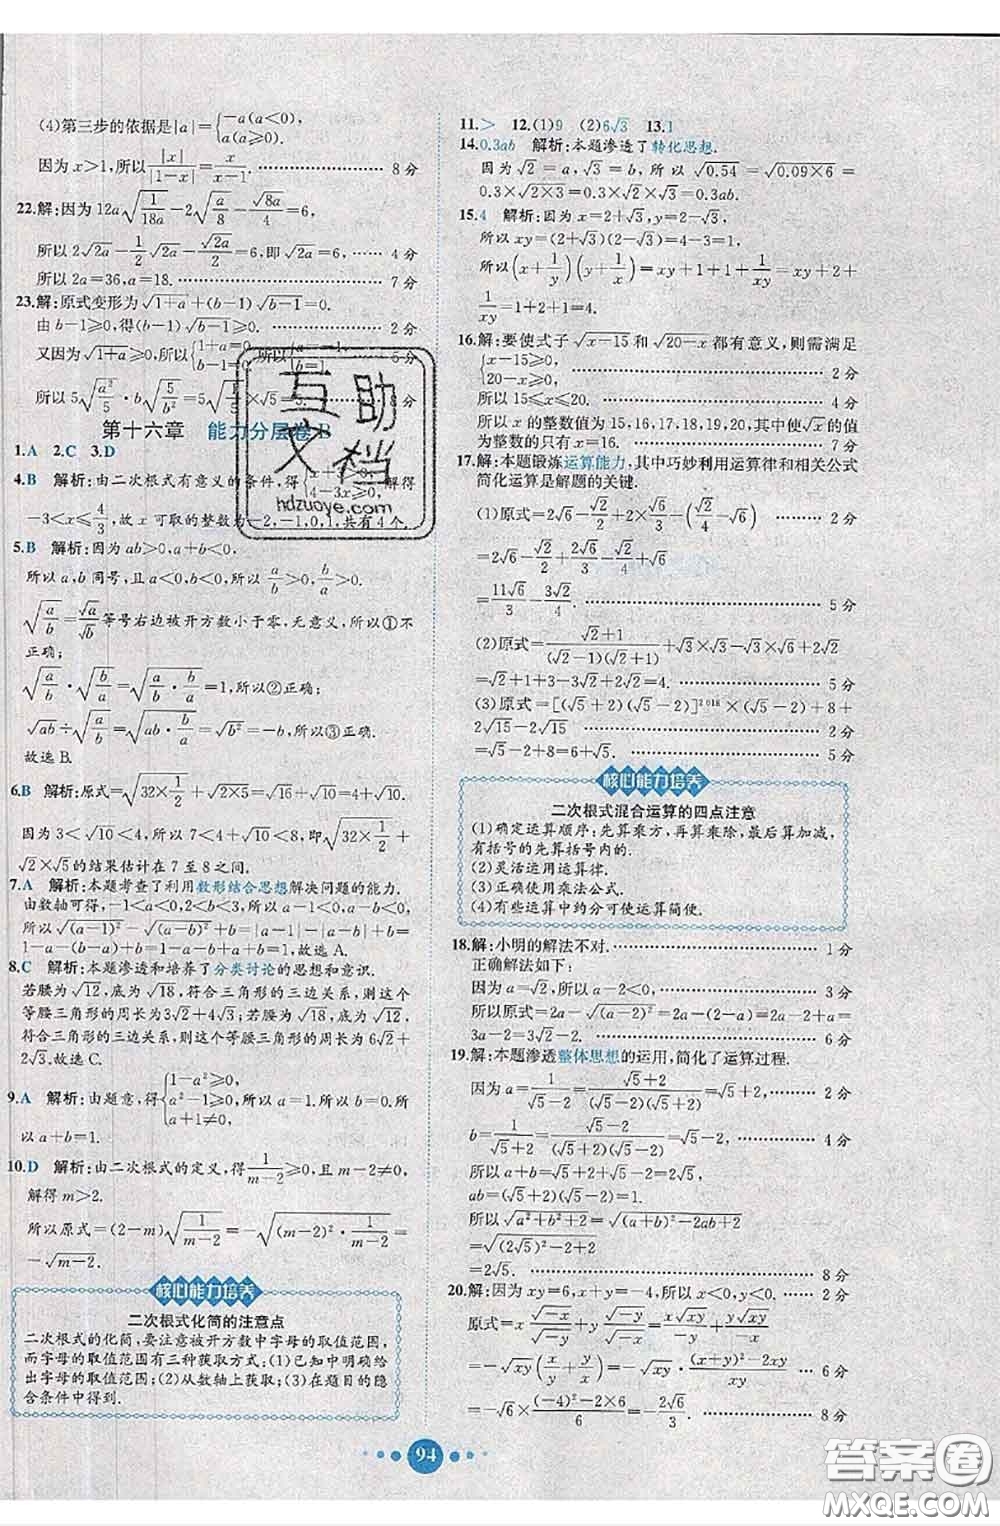 (4)第三步的依据是|a|={-a(a<0), a(a≥0).
因为x>1,所以|x|/|1-x|=x/(x-1). 8分
22.解:因为12a√(1/18a)-2√(a/8)-√(8a)/4=6,
所以2√2a-1/2√2a-√2a/2=6,即√2a=6, 4分
所以2a=36,a=18. 7分
23.解:原式变形为√(1+a)+(b-1)√(b-1)=0.
由b-1≥0,得(b-1)√(b-1)≥0. 2分
又因为√(1+a)≥0,所以{1+a=0, b-1=0, 所以 5分
所以5√(a²/5)·b√(5/b²) ×√5=5. 8分
第十六章 能力分层卷B
1.A 2.C 3.D
4.B 解析:由二次根式有意义的条件,得{x+3>0, 4-3x≥0, 解得
-3<x≤4/3,故x可取的整数为-2,-1,0,1,共有4个.
5.B 解析:因为ab>0,a+b<0,
所以a,b同号,且a<0,b<0,所以a/b>0,b/a>0.
√(a/b)=√a/√b等号右边被开方数小于零,无意义,所以①不
正确;
√(a/b)·√(b/a)=√(a/b·b/a)=√1=1,所以②正确;
√ab÷√(a/b)=√(ab·b/a)=√b²=-b,所以③正确.
故选B.
6.B 解析:原式=√(32×1/2)+√(2×5)=√16+√10=4+√10.
因为3<√10<4,所以7<4+√10<8,即√(32×1/2)+
√2×√5的结果估计在7至8之间.
7.A 解析:本题考查了利用数形结合思想解决问题的能力.
由数轴可得,-1<a<0,2<b<3,所以a-1<0,a-b<0,
所以√(a-1)²-√(a-b)²+b=|a-1|-|a-b|+b=
1-a-(b-a)+b=1-a-b+a+b=1,故选A.
8.C 解析:本题渗透和培养了分类讨论的思想和意识.
若腰为√12,底为√18,符合三角形的三边关系,则这个
等腰三角形的周长为3√2+4√3;若腰为√18,底为√12,
符合三角形的三边关系,则这个等腰三角形的周长为6√2+
2√3.故选C.
9.A 解析:由题意,得{1-a²≥0, a²-1≥0, a+1≠0, 所以a=1.所以b=0.所
以a+b=1.
10.D 解析:由二次根式的定义,得1/(m-2)≥0,且m-2≠0,
解得m>2.
所以原式=(2-m)√(1/(m-2))=-√((m-2)²·1/(m-2))=
-√(m-2).
核心能力培养
二次根式化简的注意点
二次根式的化简,要注意被开方数中字母的取值范围,
而字母的取值范围有三种获取方式:(1)已知中明确给
出字母的取值范围;(2)从数轴上获取;(3)在题目的隐
含条件中得到.
11.> 12.(1)9 (2)6√3 13.1
14.0.3ab 解析:本题渗透了转化思想.
因为√2=a,√3=b,所以√0.54=√(0.09×6)=
0.3×√(2×3)=0.3×√2×√3=0.3ab.
15.4 解析:因为x=2+√3,y=2-√3,
所以xy=(2+√3)(2-√3)=4-3=1,
所以(x+1/y)(y+1/x)=xy+1+1+1/xy=xy+2+
1/xy=1+2+1=4.
16.解:要使式子√(x-15)和√(20-x)都有意义,则需满足
{x-15≥0, 20-x≥0. 2分
所以15≤x≤20. 4分
所以x的整数值为15,16,17,18,19,20,其中使√x为整
数的只有x=16. 7分
17.解:本题锻炼运算能力,其中巧妙利用运算律和相关公式
简化运算是解题的关键.
(1)原式=2√6-√2/2+2×√6/3-(√2/4-√6) 2分
=2√6-√2/2+2√6/3-√2/4+√6
=11√6/3-3√2/4. 5分
(2)原式=(√2+1)/((√2-1)(√2+1))+√3×√3-√3×√6+2√2
=√2+1+3-3√2+2√2=4. 5分
(3)原式=[(√5+2)(√5-2)]²⁰¹⁸×(√5-2)+8+
2√15-2√15 2分
=√5-2+8=6+√5. 5分
核心能力培养
二次根式混合运算的四点注意
(1)确定运算顺序:先算乘方,再算乘除,最后算加减,
有括号的先算括号内的.
(2)灵活运用运算律.
(3)正确使用乘法公式.
(4)有些运算中约分可使运算简便.
18.解:小明的解法不对. 1分
正确解法如下:
因为a=√2,所以a-2<0. 3分
所以原式=2a-√(a-2)²=2a-(2-a)=2a-2+a=
3a-2=3√2-2. 6分
19.解:本题渗透整体思想的运用,简化了运算过程.
因为a=1/(√5-2)=(√5+2)/((√5-2)(√5+2))=√5+2, 2分
b=1/(√5+2)=(√5-2)/((√5+2)(√5-2))=√5-2, 4分
所以a+b=√5+2+√5-2=2√5,
ab=(√5+2)(√5-2)=1.
所以√(a²+b²+2)=√((a+b)²-2ab+2)
=√((2√5)²-2+2)
=2√5. 8分
20.解:因为xy=6,x+y=-4,所以x<0,y<0. 2分
原式=x√(-y)/√(-x)+y√(-x)/√(-y)=x√xy/(-x)+y√xy/(-y)
=-√xy(x/y+y/x)=-√xy·((x+y)²-2xy)/xy 6分
=-√6×((-4)²-2×6)/6=-2√6/3. 8分
94
互助
文档
hdzuoye.com
答案圈
MXQE.COM